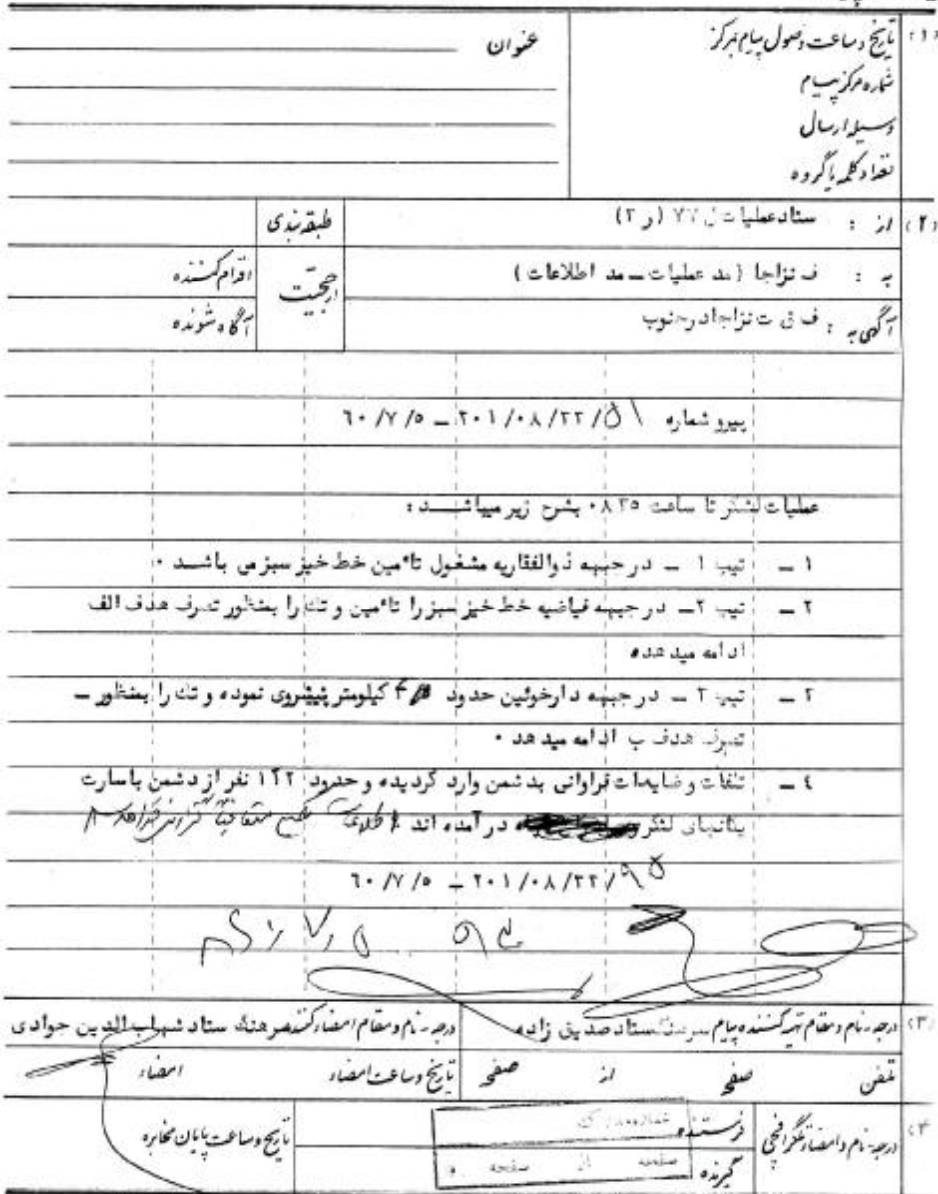 (۱) تاریخ و ساعت وصول پیام بمرکز
عنوان
شماره مرکز پیام
وسیله ارسال
تعداد کلمه یا گروه
(۲) از : ستاد عملیات ل ۷۷ (ر ۳)
طبقه بندی
به : ف نزاجا (مد عملیات ــ مد اطلاعات)
ارجحیت
اقدام کننده
آگهی به : ف ق ت نزاجا در جنوب
آگاه شونده
پیرو شماره ۲۰۱/۰۸/۲۲/۵۱ ــ ۶۰/۷/۵
عملیات لشکر تا ساعت ۰۸۳۵ بشرح زیر میباشــد :
۱ ــ تیپ ۱ ــ در جبهه ذوالفقاریه مشغول تاٴمین خط خیز سبز می باشد ۰
۲ ــ تیپ ۲ــ در جبهه فیاضیه خط خیز سبز را تاٴمین و تك را بمنظور تصرف هدف الف
ادامه میدهده
۳ ــ تیپ ۳ ــ در جبهه دارخوئین حدود ۴ کیلومتر پیشروی نموده و تك را بمنظور ــ
تصرف هدف ب ادامه میدهد ۰
٤ ــ تلفات و ضایعات فراوانی بدشمن وارد گردیده و حدود ۱۲۲ نفر از دشمن باسارت
یگانهای لشکر در آمده اند اطلاعات متعاقباً گزارش
۲۰۱/۰۸/۲۲/۹۵ ــ ۶۰/۷/۵
(۳) درجه ـ نام و مقام تهیه کننده پیام سرهنگ ستاد صدیق زاده
درجه ـ نام و مقام امضاء کننده سرهنگ ستاد شهاب الدین جوادی
تلفن
صفحه از صفحه
تاریخ و ساعت امضاء
امضاء
(۴) درجه ـ نام و امضاء تلگرافچی
فرستنده
گیرنده
تاریخ و ساعت پایان مخابره
صفحه از صفحه